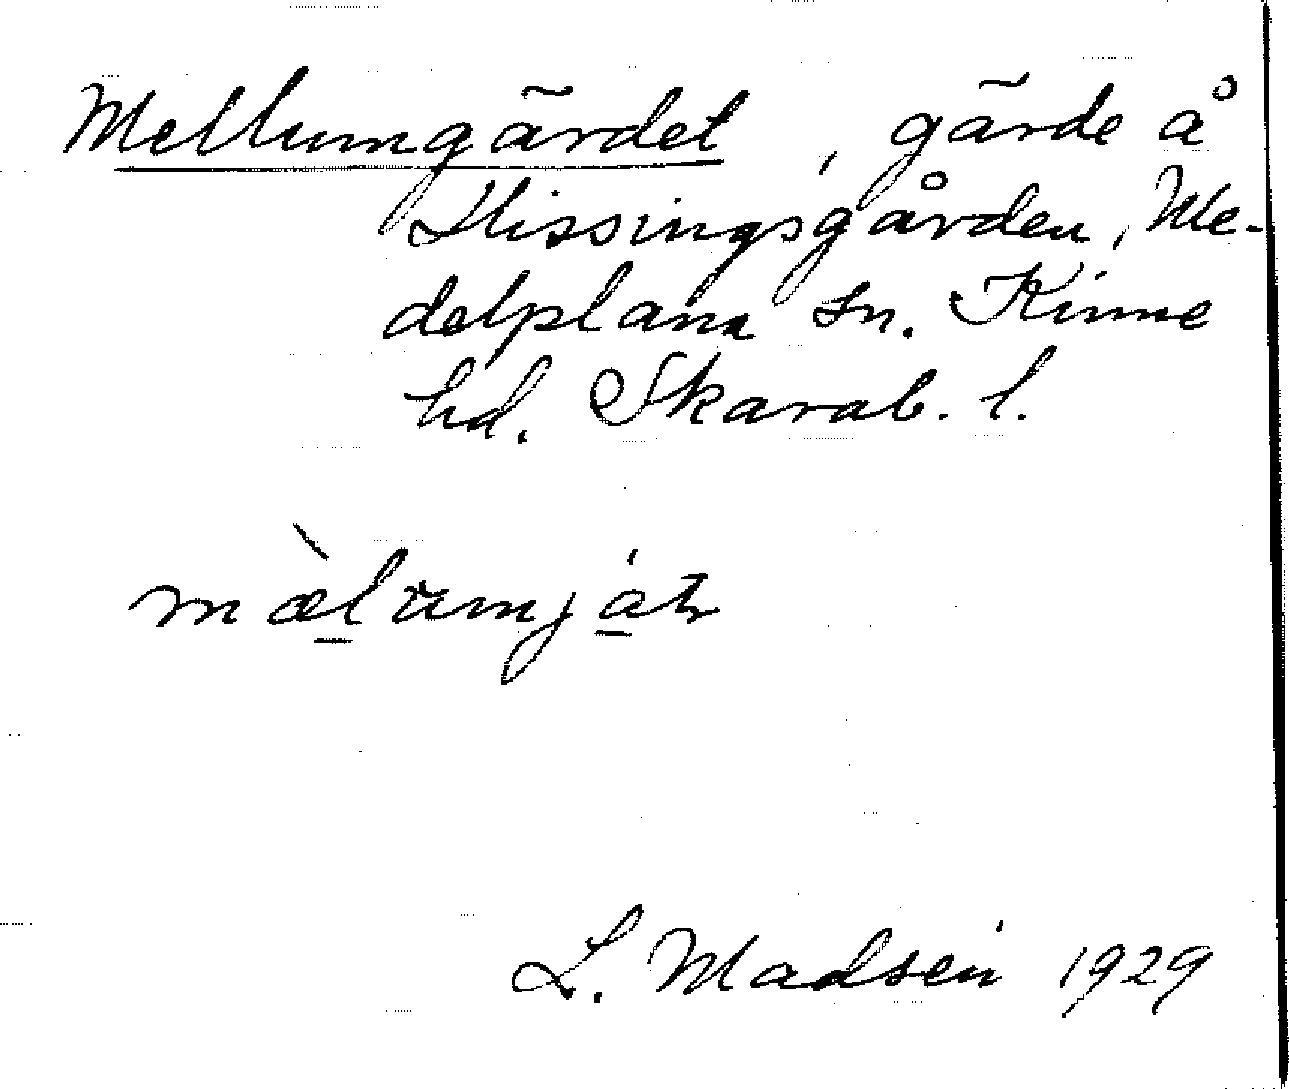 Mellumgärdet, gärde å
Hissingsgården, Me-
delplana sn. Kinne
hd. Skarab. l.
L. Madsen 1929